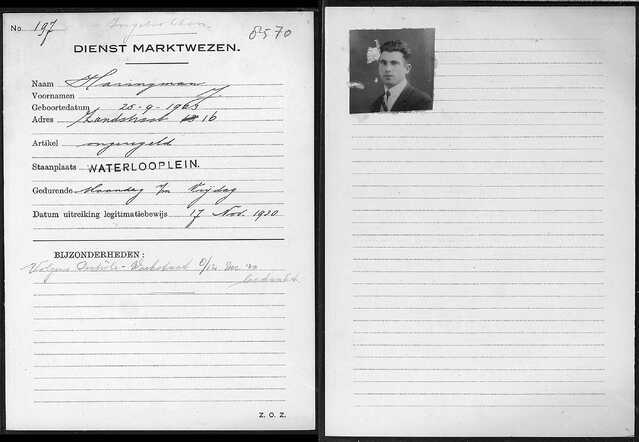 No. 197
8570
DIENST MARKTWEZEN.
Naam Haringman
Voornamen J
Geboortedatum 25-9-1903
Adres Zandstraat 16
Artikel ongeregeld
Staanplaats WATERLOOPLEIN.
Gedurende Maandag t/m Vrijdag
Datum uitreiking legitimatiebewijs 17 Nov. 1930
BIJZONDERHEDEN:
Volgens Controle-
bedankt
Z. O. Z.